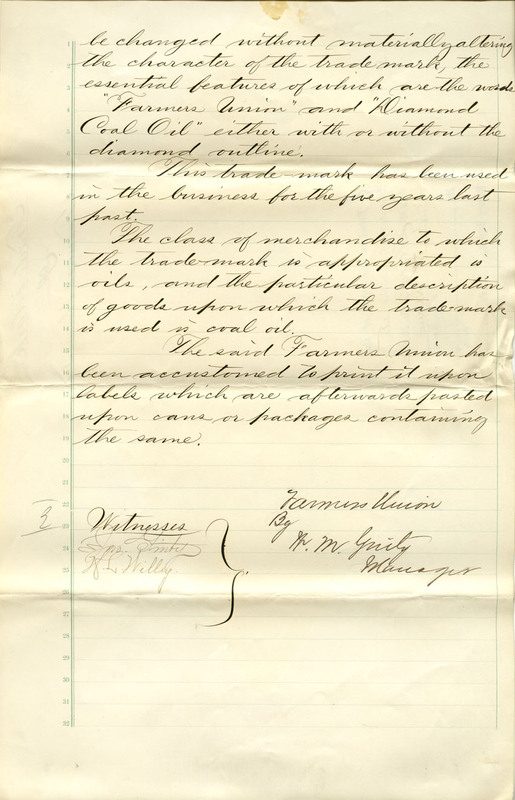 be changed without materially altering
the character of the trade mark, the
essential features of which are the words
"Farmers Union" and "Diamond
Coal Oil" either with or without the
diamond outline.
This trade-mark has been used
in the business for the five years last
past.
The class of merchandise to which
the trade-mark is appropriated is
oils, and the particular description
of goods upon which the trade-mark
is used is coal oil.
The said Farmers Union has
been accustomed to print it upon
labels which are afterwards pasted
upon cans or packages containing
the same.
Farmers Union
By
Witnesses
W. M. Ginty
Manager
1
2
3
4
5
6
7
8
9
10
11
12
13
14
15
16
17
18
19
20
21
22
23
24
25
26
27
28
29
30
31
32